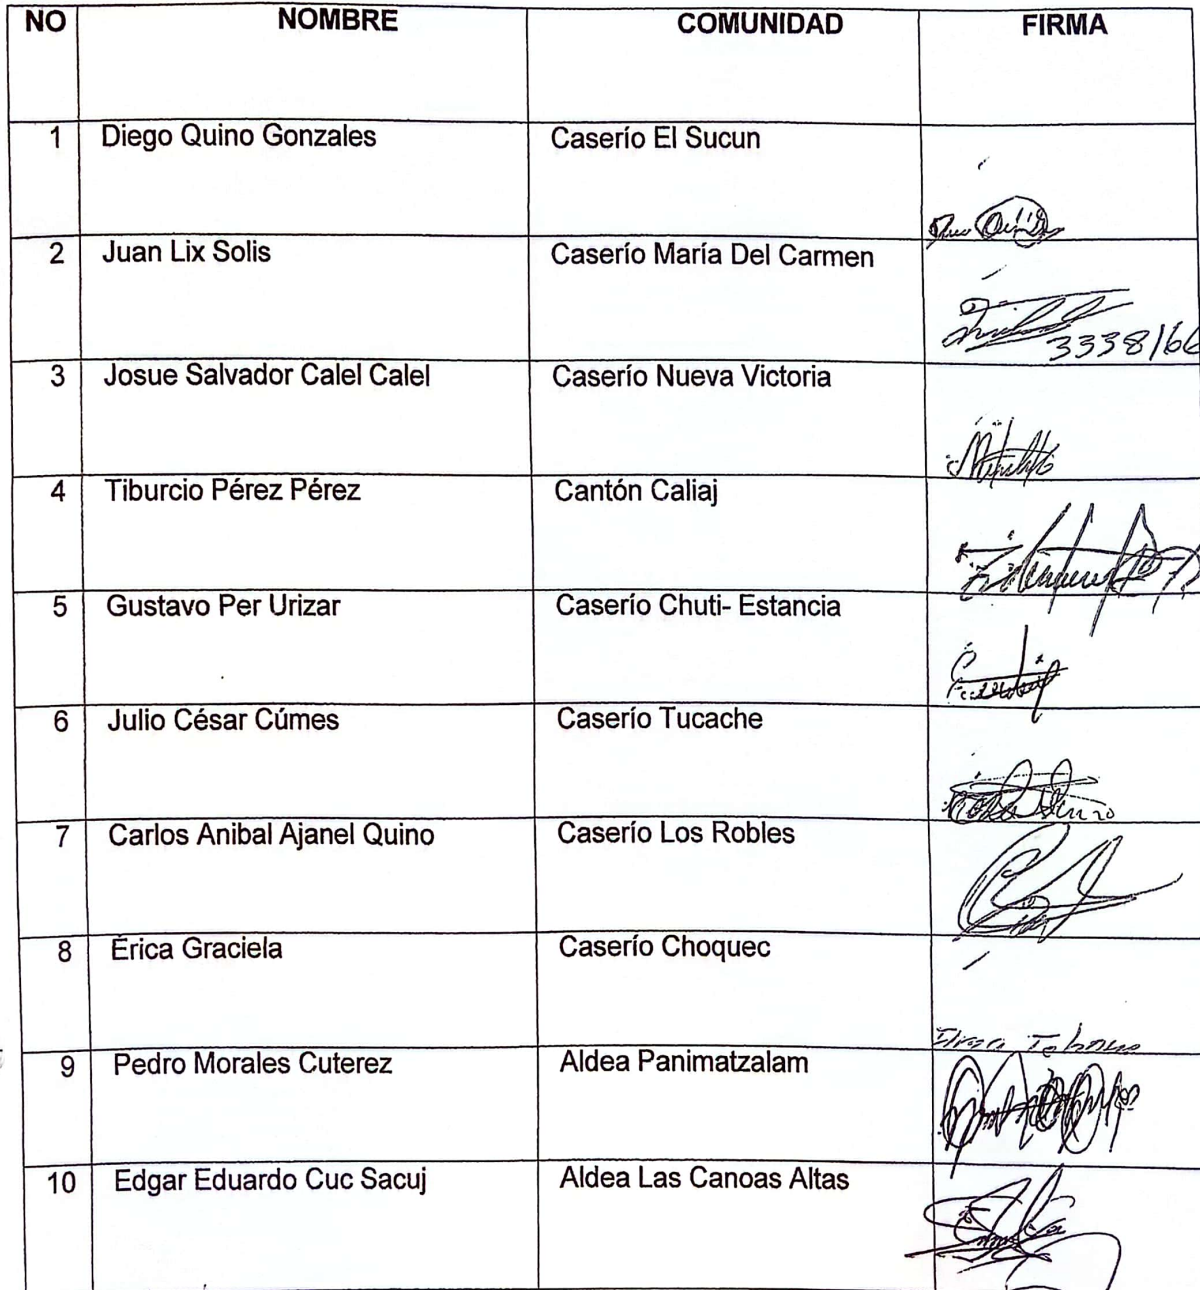 NO NOMBRE COMUNIDAD FIRMA
1 Diego Quino Gonzales Caserío El Sucun
2 Juan Lix Solis Caserío María Del Carmen
3338166
3 Josue Salvador Calel Calel Caserío Nueva Victoria
4 Tiburcio Pérez Pérez Cantón Caliaj
5 Gustavo Per Urizar Caserío Chuti- Estancia
6 Julio César Cúmes Caserío Tucache
7 Carlos Anibal Ajanel Quino Caserío Los Robles
8 Érica Graciela Caserío Choquec
9 Pedro Morales Cuterez Aldea Panimatzalam
10 Edgar Eduardo Cuc Sacuj Aldea Las Canoas Altas